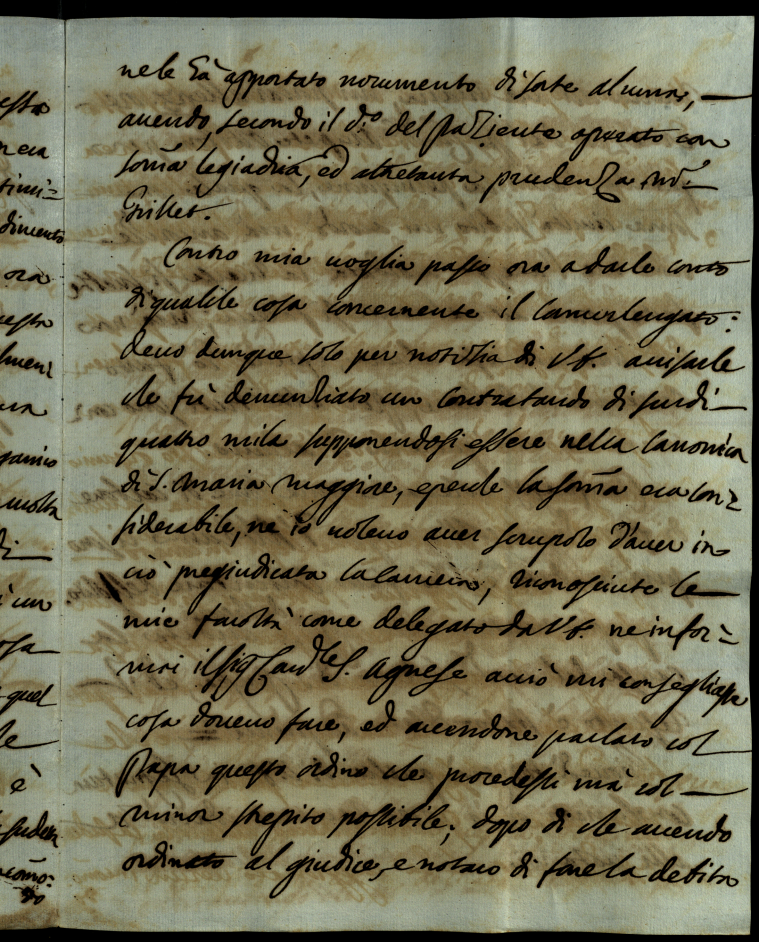 ne le hà apportato nocumento di sorte alcuna,
avendo, secondo il d.º del paziente operato con
som̃a legiadria, ed altretanta prudenza
Grillet.
Contro mia voglia passo ora a darle conto
di qualche cosa concernente il Camerlengato:
devo dunque solo per notitia di V.E. avisarle
che fù denuntiato un Contrabando di
quattro mila supponendosi essere nella Canonica
di S. Maria Maggiore, e perche la som̃a era con=
siderabile, ne io volevo aver scrupolo d'aver in
ciò pregiudicata la Camera, riconosciute le
mie facoltà come delegato da V.E. ne infor=
mai il Sig. Card.le S. Agnese acciò mi consegliasse
cosa dovevo fare, ed avendone parlato col
Papa questo ordinò che procedessi mà col
minor strepito possibile; dopo di che avendo
ordinato al giudice, e notaro di fare la debita
esta
era
timi=
dimento
ora
questa
lmen
ura
molta
di
un
osa
quel
le
è
sudetta
com̃o=
do